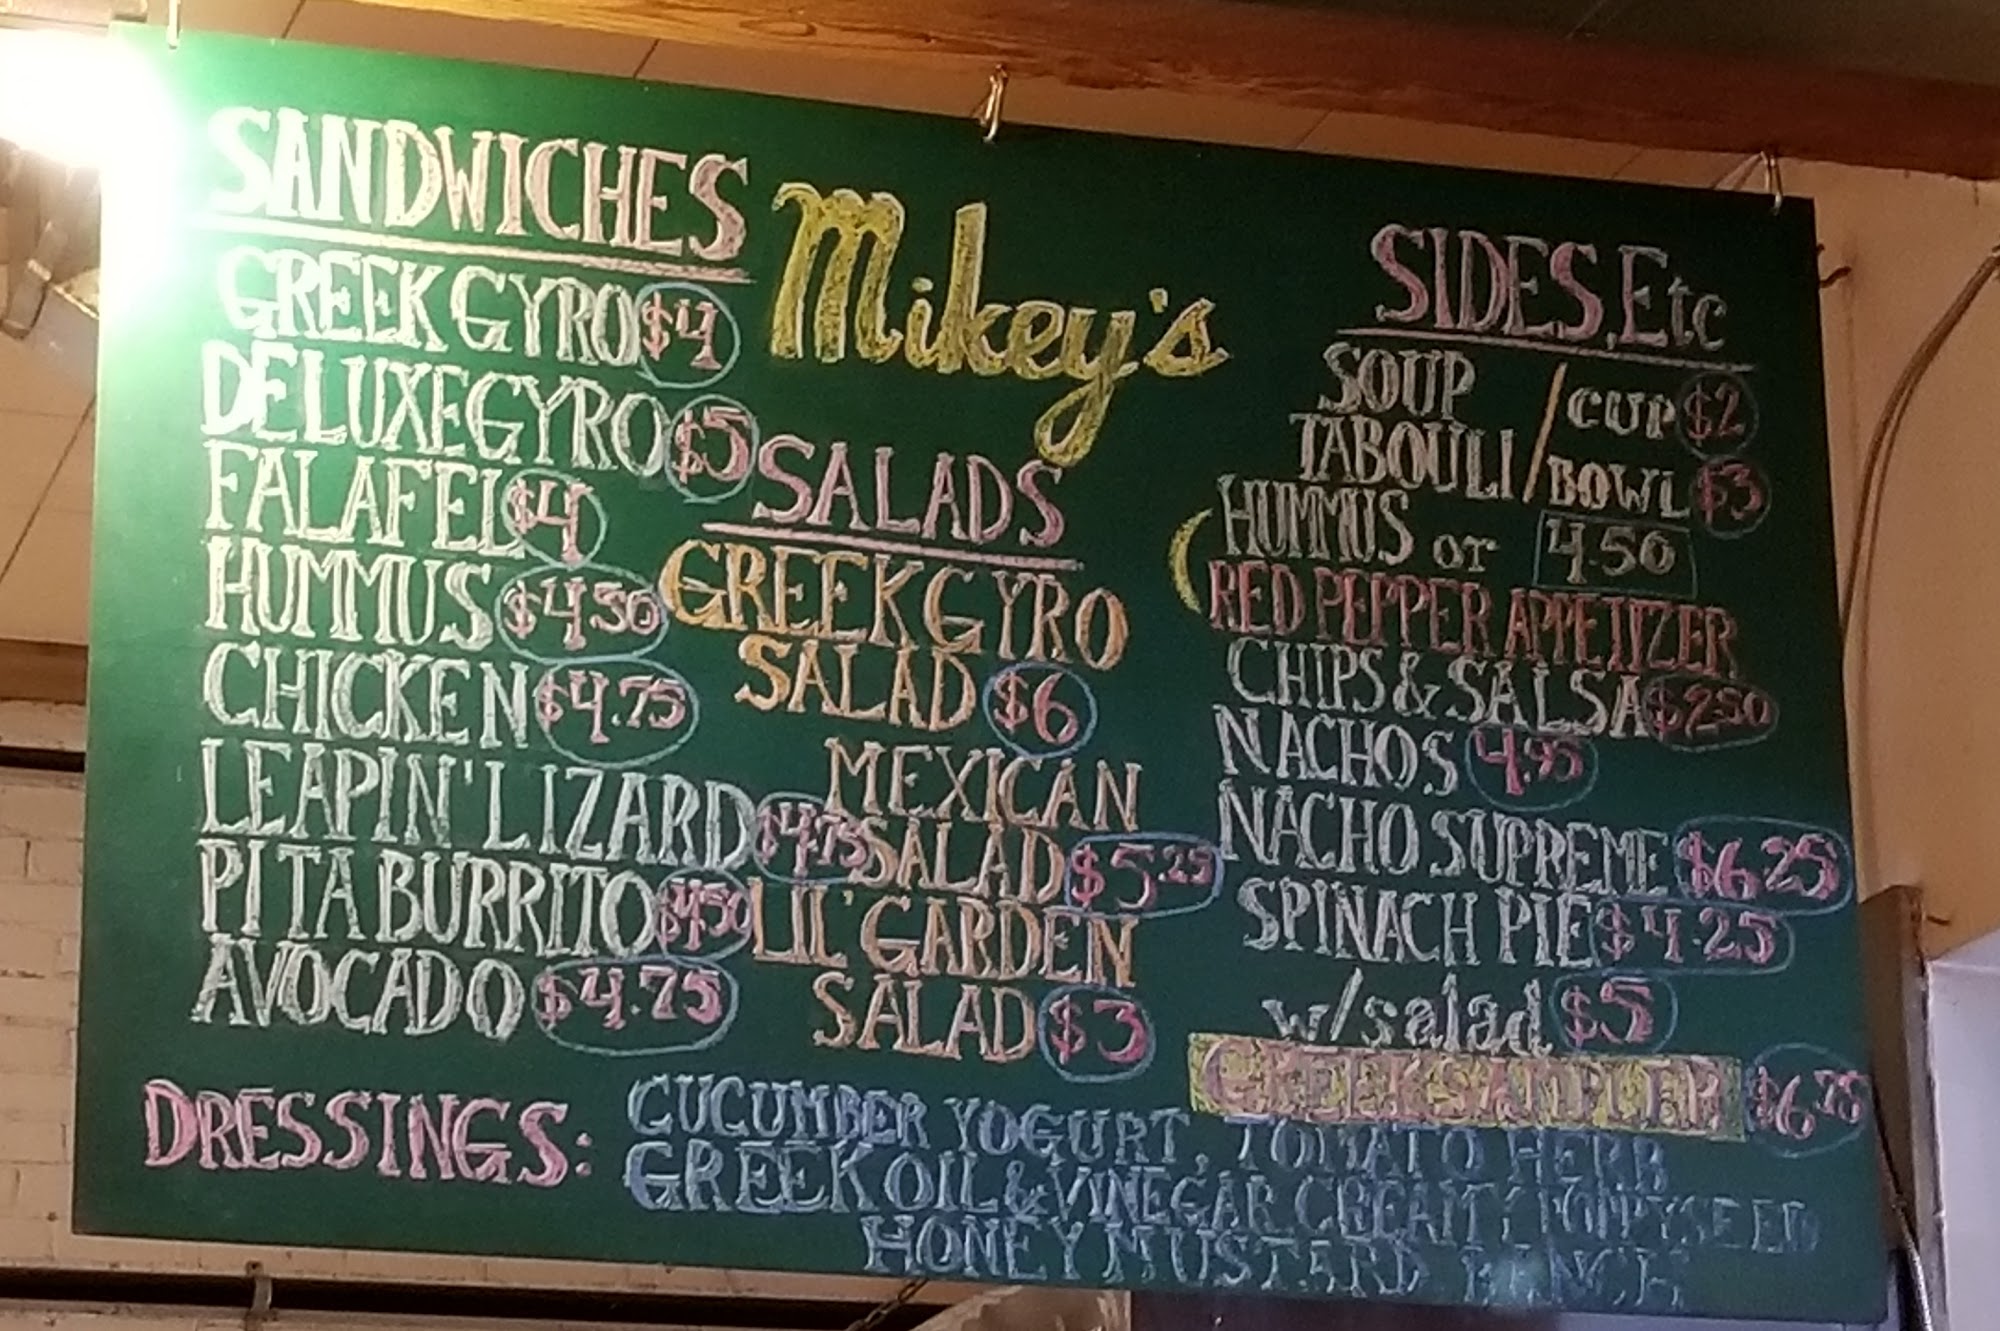 Mikey's
SANDWICHES
GREEK GYRO $4
DELUXE GYRO $5
FALAFEL $4
HUMMUS $4.50
CHICKEN $4.75
LEAPIN' LIZARD $4.75
PITA BURRITO $4.50
AVOCADO $4.75
SALADS
GREEK GYRO
SALAD $6
MEXICAN
SALAD $5.25
LIL' GARDEN
SALAD $3
SIDES, Etc
SOUP / CUP $2
TABOULI / BOWL $3
HUMMUS or 4.50
RED PEPPER APPETIZER
CHIPS & SALSA $2.50
NACHOS 4.95
NACHO SUPREME $6.25
SPINACH PIE $4.25
w/salad $5
GREEK SAMPLER $6.75
DRESSINGS: CUCUMBER YOGURT, TOMATO HERB
GREEK OIL & VINEGAR, CREAMY POPPYSEED
HONEY MUSTARD RANCH